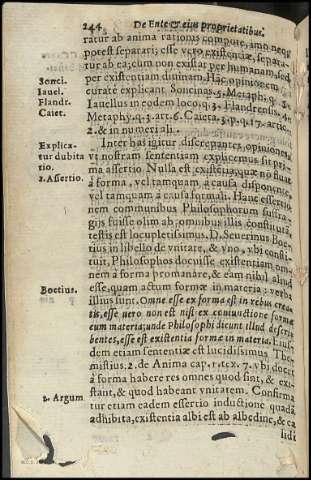 244 De Ente & eius proprietatibus.
ratur ab anima rationis compote, imo neq;
potest separari; esse vero existentiæ, separa-
tur ab ea; cum non existat per humanam, sed
per existentiam diuinam. Hæc opinionem
curate explicant Soncinas 5. Metaph. q. 5.
Iauellus in eodem loco, q. 3. Flandrens. 4.
Metaphy. q. 3. art. 6. Caieta. 3. p. q. 17. artic.
2. & in numeri alij.
Sonci.
Iauel.
Flandr.
Caiet.
Inter has igitur discrepantes opiniones,
vt nostram sententiam explicemus sit pri-
ma assertio. Nulla est existētia, quæ nō fluat
à forma, vel tamquam à causa disponente,
vel tamquam à causa formali. Hanc assertio-
nem communibus Philosophorum suffra-
gijs fuisse olim ab omnibus illis constitutā,
testis est locupletissimus. D. Seuerinus Boe-
tius in libello de vnitate, & vno, vbi consti-
tuit, Philosophos docuisse existentiam om-
nem à forma promanare, & eam nihil aliud
esse, quam actum formæ in materia: verba
illius sunt. Omne esse ex forma est in rebus crea-
tis, esse vero non est nisi ex coniunctione formæ
cum materia; unde Philosophi dicunt illud descri-
bentes, esse est existentia formæ in materia. Eius-
dem etiam sententiæ est lucidissimus The-
mistius. 2. de Anima cap. 1. tex. 7. vbi docet
à forma habere res omnes quod sint, & exi-
stant, & quod habeant vnitatem. Confirma
tur etiam eadem assertio inductione quadā
adhibita, existentia albi est ab albedine, & ca
lidi
Explica-
tur dubita
tio.
1. Assertio.
Boetius.
2. Argum